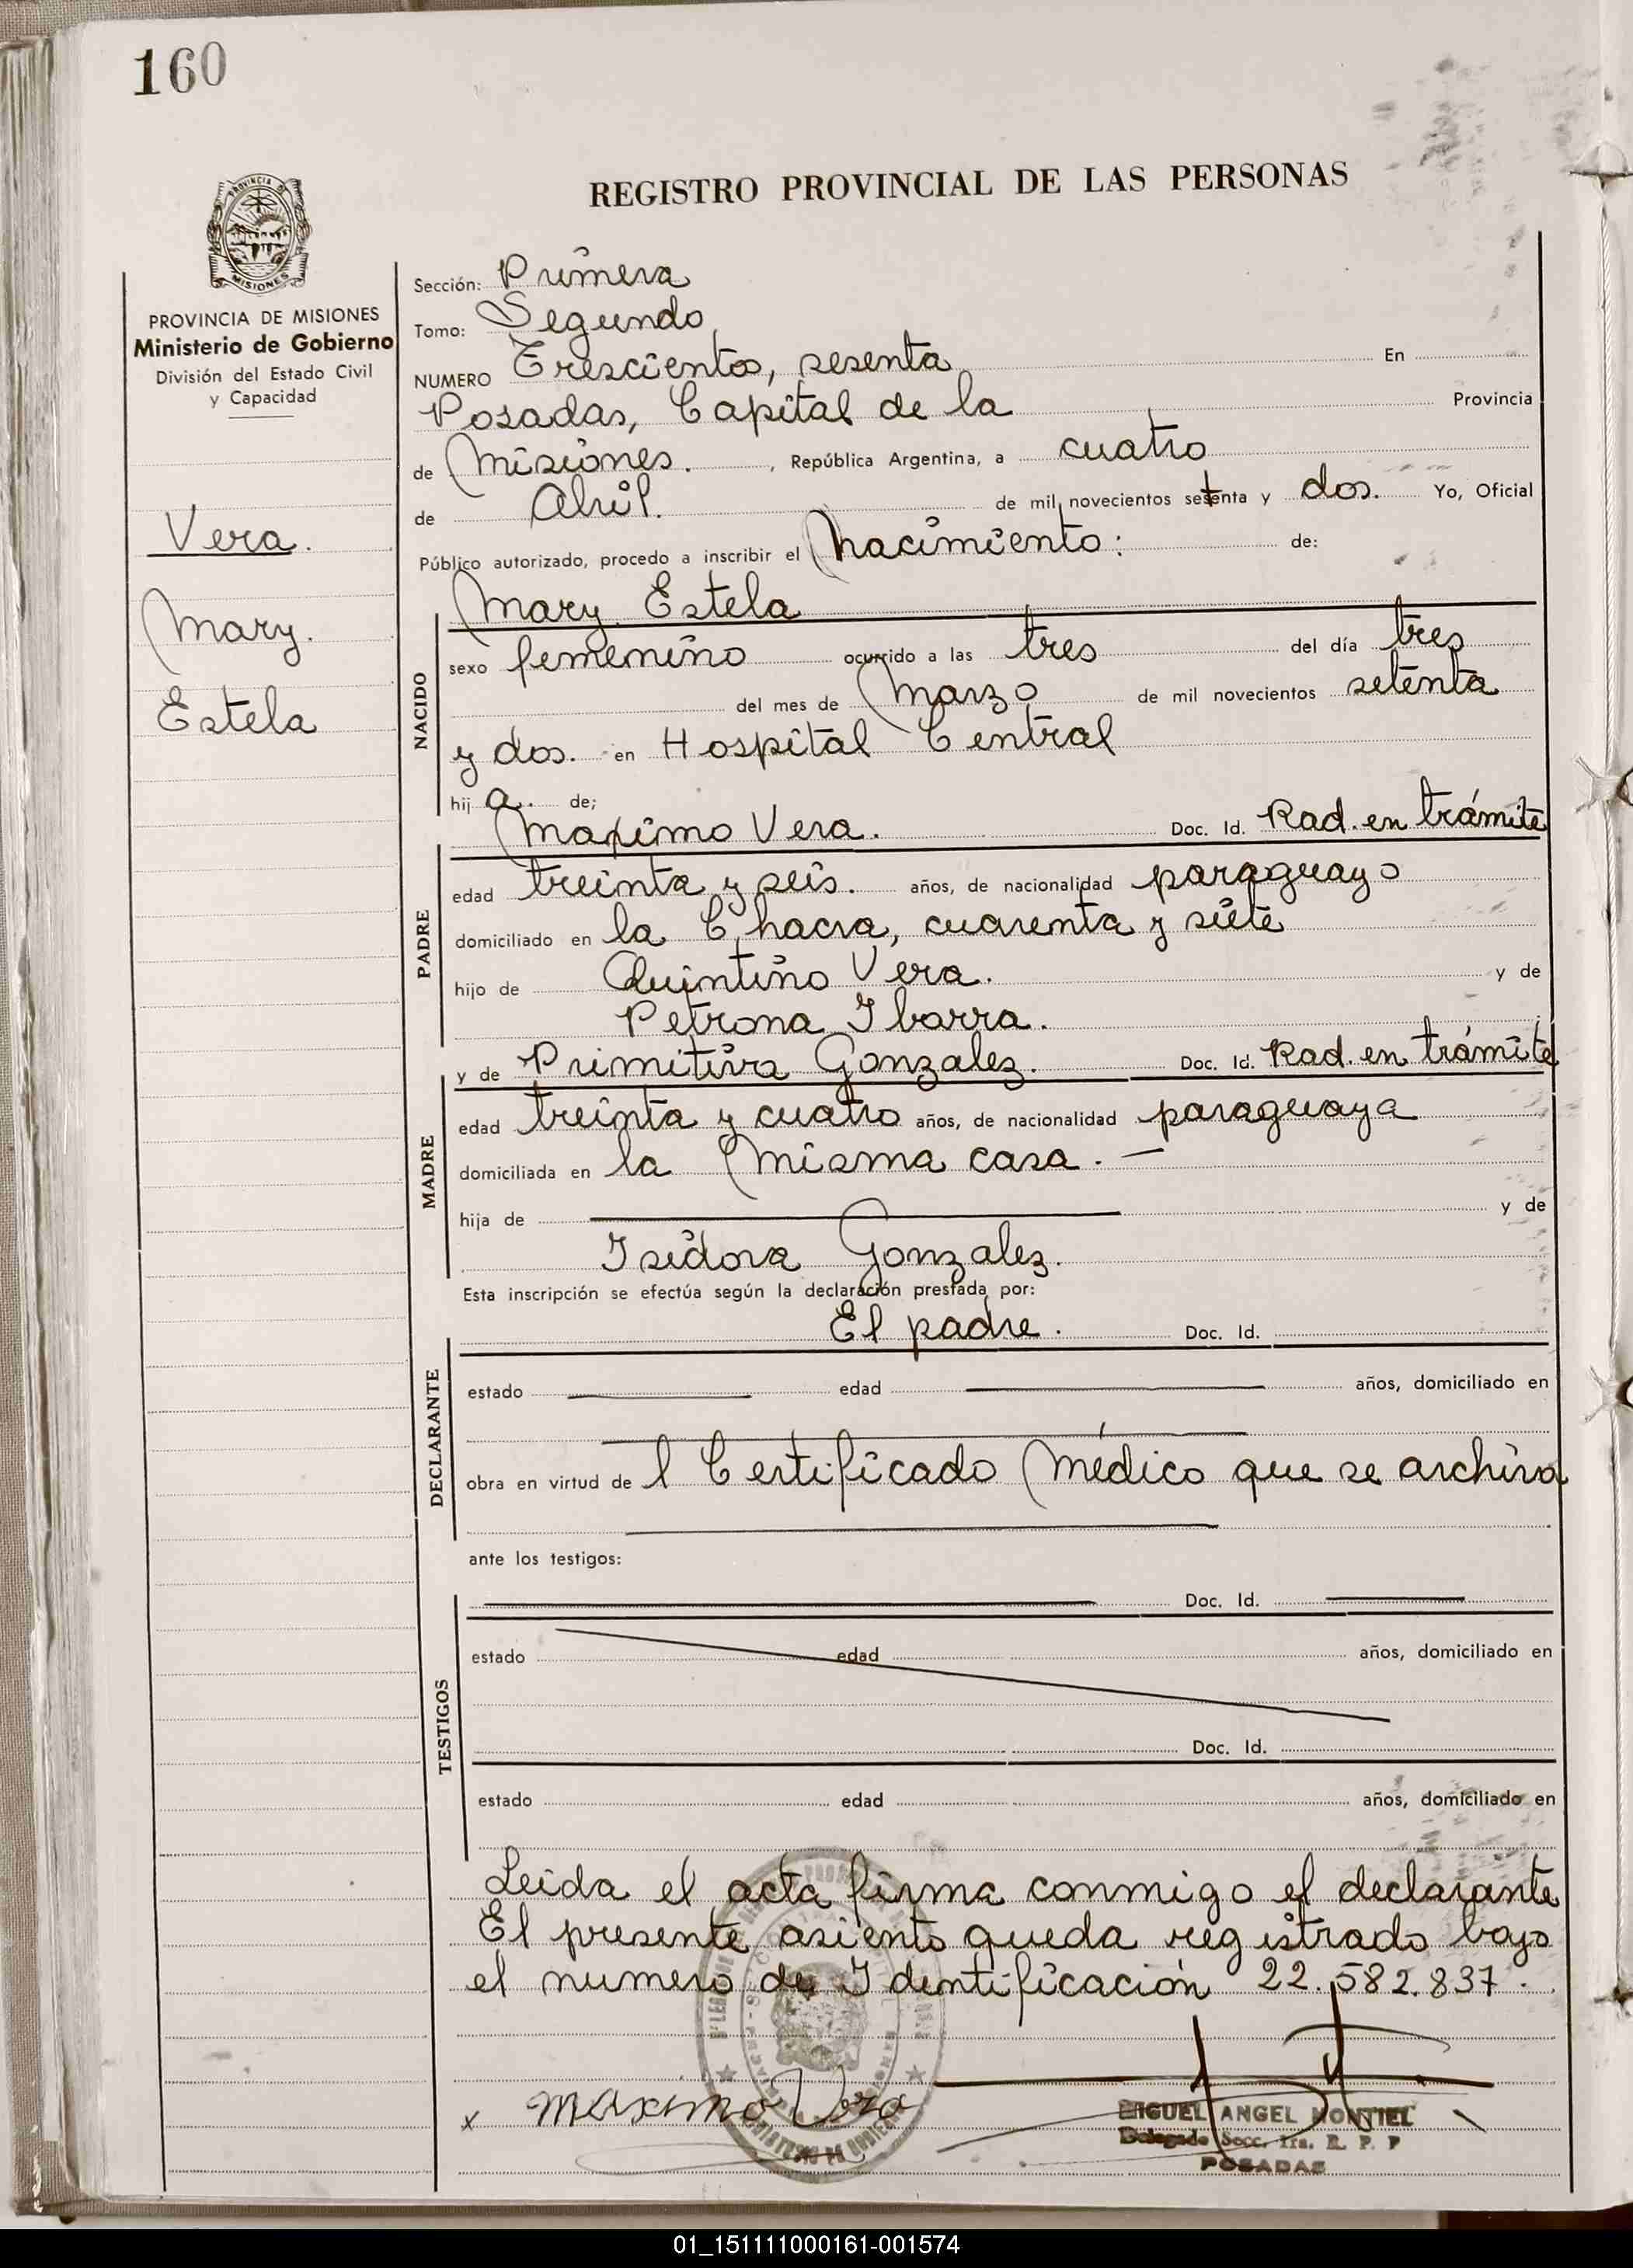 160
REGISTRO PROVINCIAL DE LAS PERSONAS
PROVINCIA DE
MISIONES
PROVINCIA DE MISIONES
Ministerio de Gobierno
División del Estado Civil
y Capacidad
Vera.
Mary.
Estela
Sección: Primera
Tomo: Segundo
NUMERO Trescientos, sesenta En
Posadas, Capital de la Provincia
de Misiones. , República Argentina, a cuatro
de Abril. de mil novecientos setenta y dos. Yo, Oficial
Público autorizado, procedo a inscribir el Nacimiento: de:
Mary Estela
NACIDO
sexo femenino ocurrido a las tres del día tres
del mes de Marzo de mil novecientos setenta
y dos. en Hospital Central
hij a. de;
Maximo Vera. Doc. Id. Rad. en trámite
PADRE
edad treinta y seis. años, de nacionalidad paraguayo
domiciliado en la Chacra, cuarenta y siete
hijo de Quintino Vera. y de
Petrona Ibarra.
y de Primitiva Gonzalez. Doc. Id. Rad. en trámite
MADRE
edad treinta y cuatro años, de nacionalidad paraguaya
domiciliada en la Misma casa. —
hija de y de
Isidora Gonzalez.
Esta inscripción se efectúa según la declaración prestada por:
El padre. Doc. Id.
DECLARANTE
estado edad años, domiciliado en
obra en virtud de l Certificado Médico que se archiva
ante los testigos:
Doc. Id.
TESTIGOS
estado edad años, domiciliado en
Doc. Id.
estado edad años, domiciliado en
Leida el acta firma conmigo el declarante
El presente asiento queda registrado bajo
el numero de Identificación 22.582.837.
x Maximo Vera
MIGUEL ANGEL MONTIEL
Delegado Secc. 1ra. R. P. P
POSADAS
01_151111000161-001574